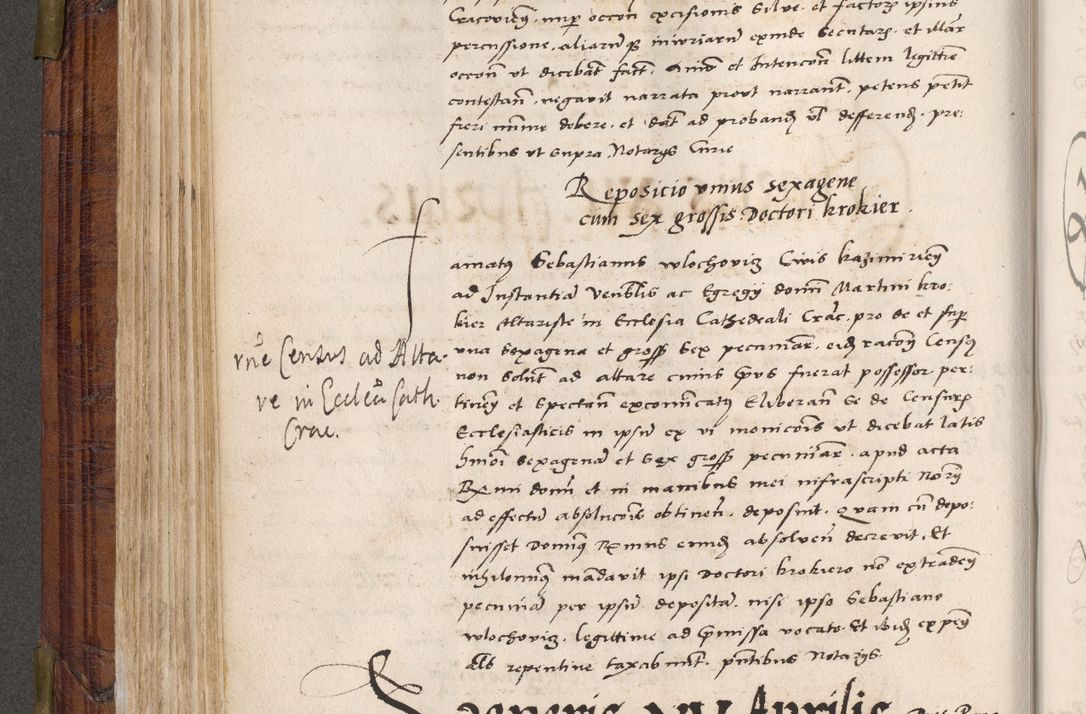 Cracovien, nup occon excisionis Silve et factoris ipsius
percussione, aliarumq iniuriarum exinde secutarum et illar
occon ut dicebat fact. Animo et Intencon littem legittime
contestan, negavit narrata prout narrant, petens petit
fieri minime debere, et dat ad proband vl defferend, pre:
sentibus ut supra Notarys Curie
Reposicio unius sexagene
cum sex grossis Doctori krokier.
famatus Sebastianus wlochowicz Civis kazimirien
ad Instantia Venblis ac Egregy domni Martini kro:
kier Altariste in Ecclesia Cathedrali Crac, pro se et sup
una sexagena et gross sex pecuniar, eid racon Censq
non solut ad altare cuius pvus fuerat possessor per:
tinen et spectan excomnicatq Eliberan se de Censurs
Ecclesiasticis in ipsum ex vi monicois ut dicebat latis
hmoi sexagena et sex gross pecuniar, apud acta
Rx mi domi et in manibus mei infrascripti Norii
ad effectu absolucois obtinen, deposuit. Quam cu depo:
suisset Dominq Rxmus eund absolven decrevit, Et
nihilominq mandavit ipsi Doctori krokiero no extraden
pecunia per ipsu deposita, nisi ipso Sebastiano
wlochowicz, legittime ad pmissa vocato, Et ibid expen
als repentine taxabunt, pntibus Notarys
vne Census ad Alta
re in Ecclea Cath
Crac.
Veneris XIV Aprilis